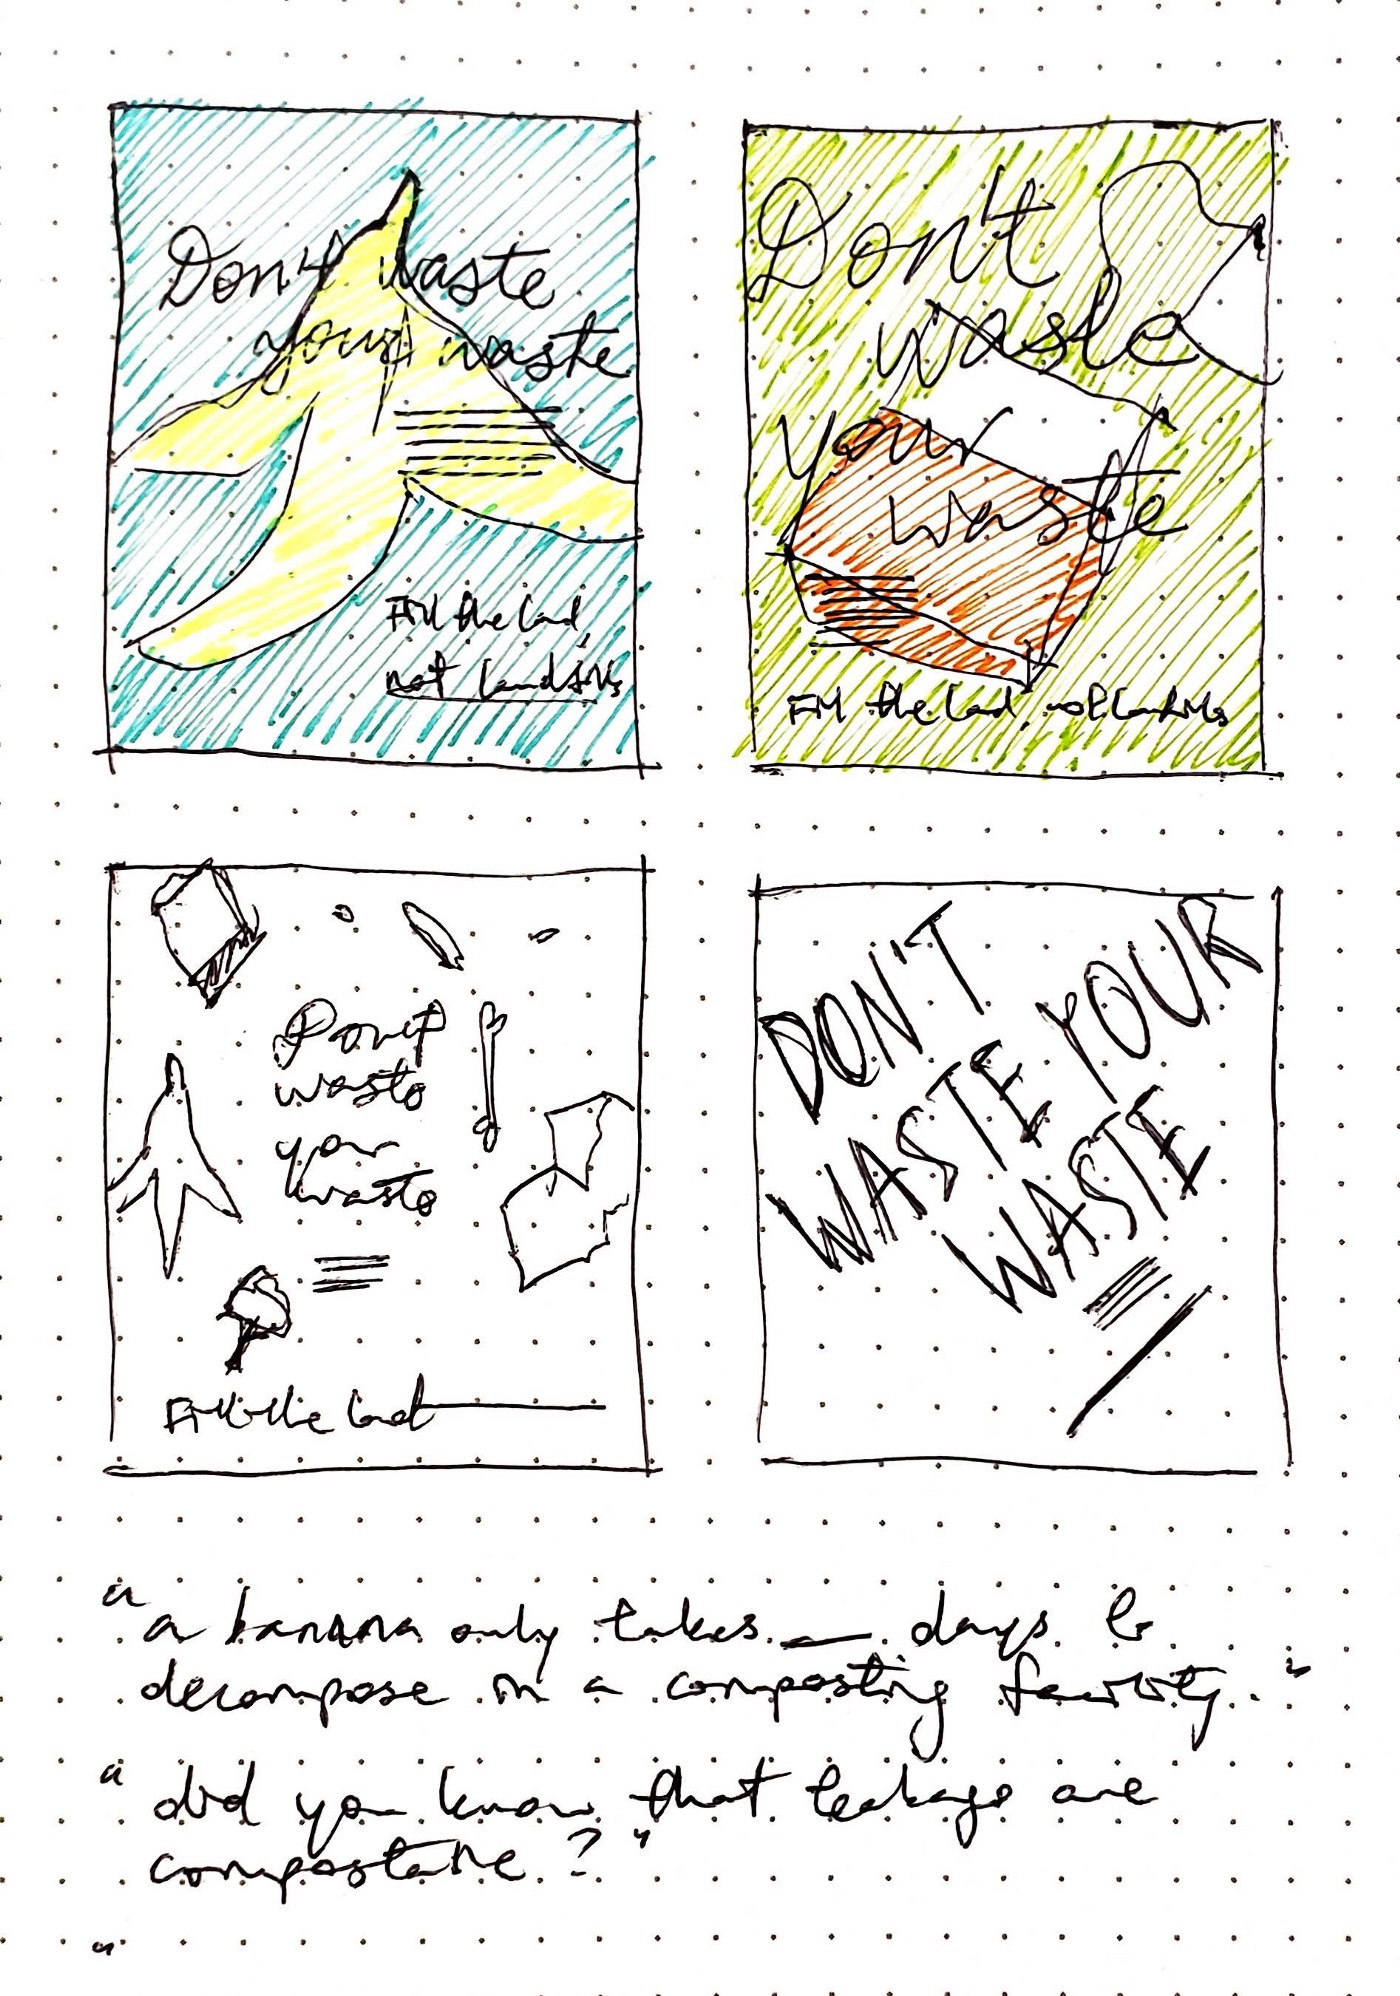 Don't waste
your waste
Fill the land,
not landfills
Don't
waste
your
waste
Fill the land, not landfills
Don't
waste
your
waste
Fill the land
DON'T
WASTE YOUR
WASTE
"a banana only takes __ days to
decompose in a composting facility."
"did you know that teabags are
compostable?"
"